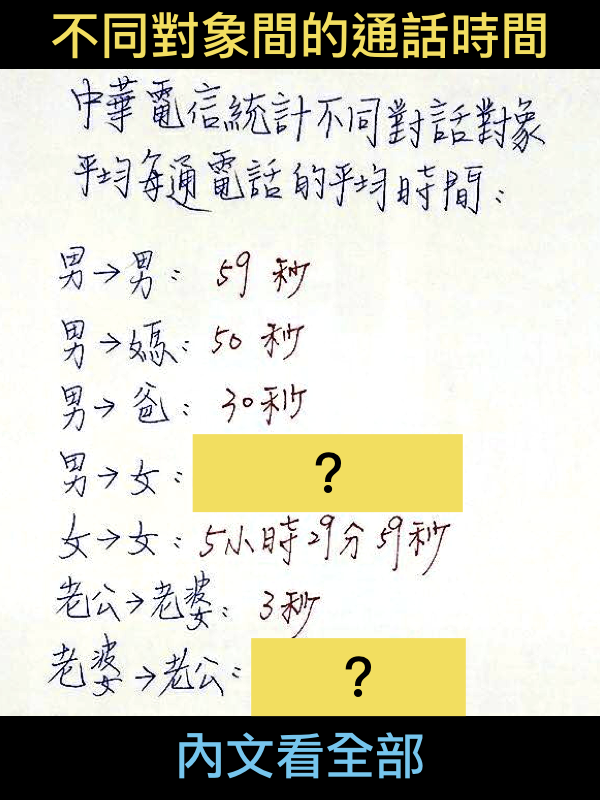 不同對象間的通話時間
中華電信統計不同對話對象
平均每通電話的平均時間：
男→男：59秒
男→媽：50秒
男→爸：30秒
男→女：?
女→女：5小時29分59秒
老公→老婆：3秒
老婆→老公：?
內文看全部